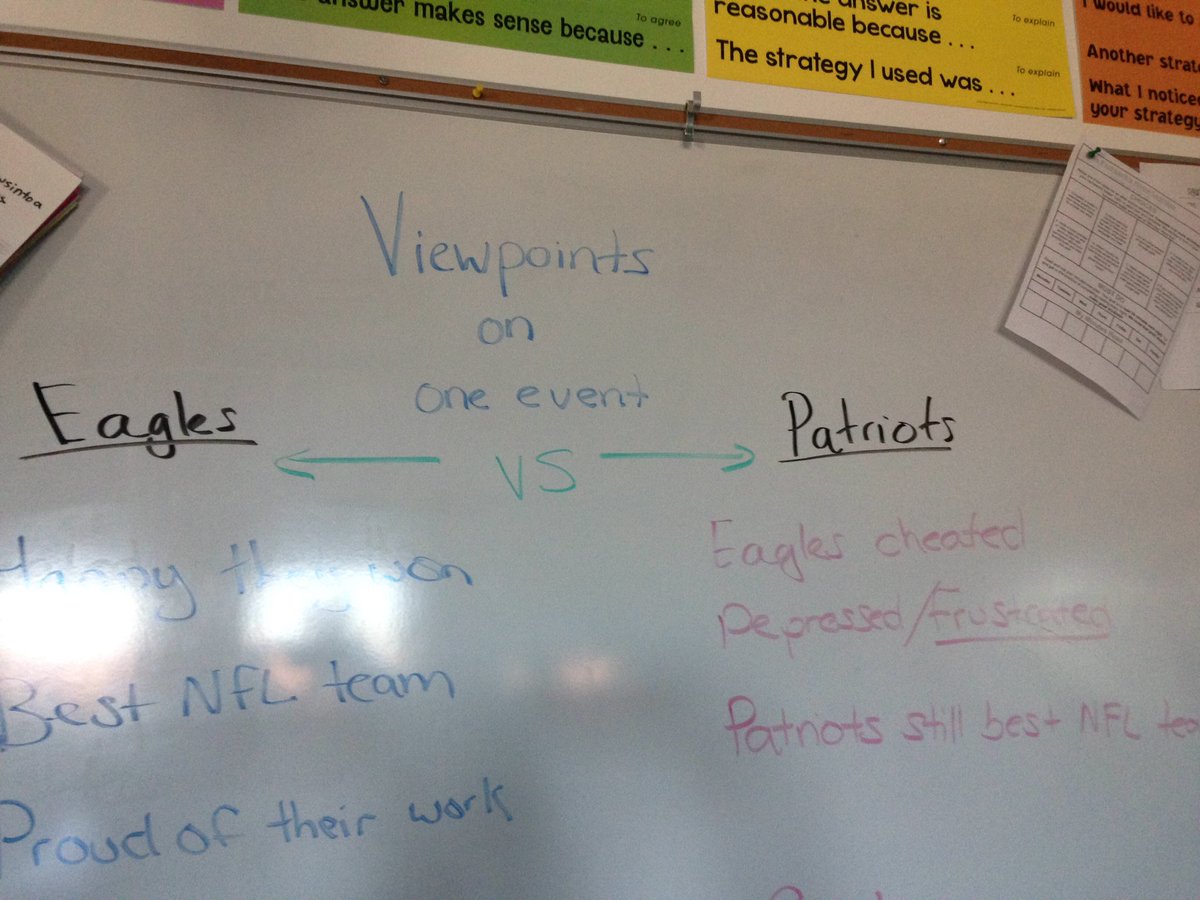 answer makes sense because . . .
To agree
answer is
reasonable because . . .
To explain
The strategy I used was . . .
To explain
I would like to
Another strat
What I noticed
your strategy
Viewpoints
on
one event
Eagles
VS
Patriots
Happy they won
Best NFL team
Proud of their work
Eagles cheated
Depressed/Frustrated
Patriots still best NFL tea